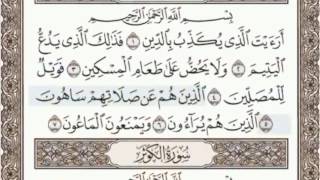 بِسْمِ ٱللَّهِ ٱلرَّحْمَٰنِ ٱلرَّحِيمِ
أَرَءَيْتَ ٱلَّذِى يُكَذِّبُ بِٱلدِّينِ ١ فَذَٰلِكَ ٱلَّذِى يَدُعُّ
ٱلْيَتِيمَ ٢ وَلَا يَحُضُّ عَلَىٰ طَعَامِ ٱلْمِسْكِينِ ٣ فَوَيْلٌ
لِّلْمُصَلِّينَ ٤ ٱلَّذِينَ هُمْ عَن صَلَاتِهِمْ سَاهُونَ
٥ ٱلَّذِينَ هُمْ يُرَآءُونَ ٦ وَيَمْنَعُونَ ٱلْمَاعُونَ ٧
سُورَةُ الْكَوْثَرِ